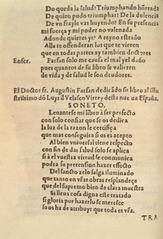 Do queda la salud? Triumphando hõrrada
De quien pudo triumphar? De la dolencia
De q̃ vso para vencer? En su presencia
mi fuerça y mi poder no valen nada
Adonde quieres yr? A reyno estraño
Alla te offenderan los que te vieren
que en todas partes ay tambien doctores
Enfer. Farfan solo me causa el mal y el daño
pues quantos de su libro se valieren
de vida y de salud le son deudores.
El Doctor F. Augustin Farfan dedicãdo su libro al Illu
strissimo dõ Luys d Velasco Virrey desta nue ua España.
SONETO.
Leuantese mi libro a ser perfecto
con solo confiar que se os dedica
la luz de la razon le certifica
que mas conseguira si es el acepto
Al bien vniuersal tiene respecto
con fin de dar salud solo se aplica
si a el vuestra virtud se comunica
podra su pretension hazer effecto
Del sancto zelo salga iluminado
que tanto en vras obras resplandece
que del supremo bien os da a maestra
Si lleua cosa digna de tratado
la gloria solo a Dios se le merece
si os ha de atribuyr que toda es vra.
TRA